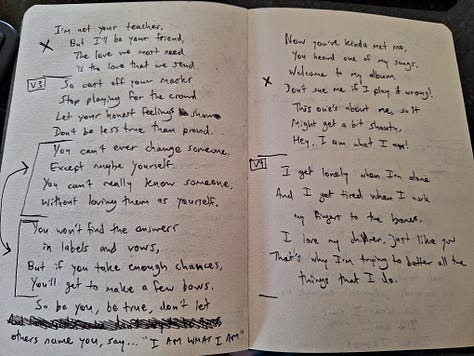 I'm not your teacher,
But I'll be your friend,
X
The love we most need
is the love that we send.
V3
So cast off your masks
Stop playing for the crowd
Let your honest feelings show
Don't be less true than proud.
You can't ever change someone,
Except maybe yourself.
You can't really know someone,
Without loving them as yourself.
You won't find the answers
in labels and vows,
But if you take enough chances,
You'll get to make a few bows.
So be you, be true, don't let
others name you, say... "I AM WHAT I AM"
Now you've kinda met me,
You heard one of my songs.
X
Welcome to my album
Don't sue me if I play it wrong!
This one's about me, so it
Might get a bit shouty,
Hey, I am what I am!
V4
I get lonely when I'm alone
And I get tired when I work
my fingers to the bones.
I love my children just like you
That's why I'm trying to better all the
things that I do.